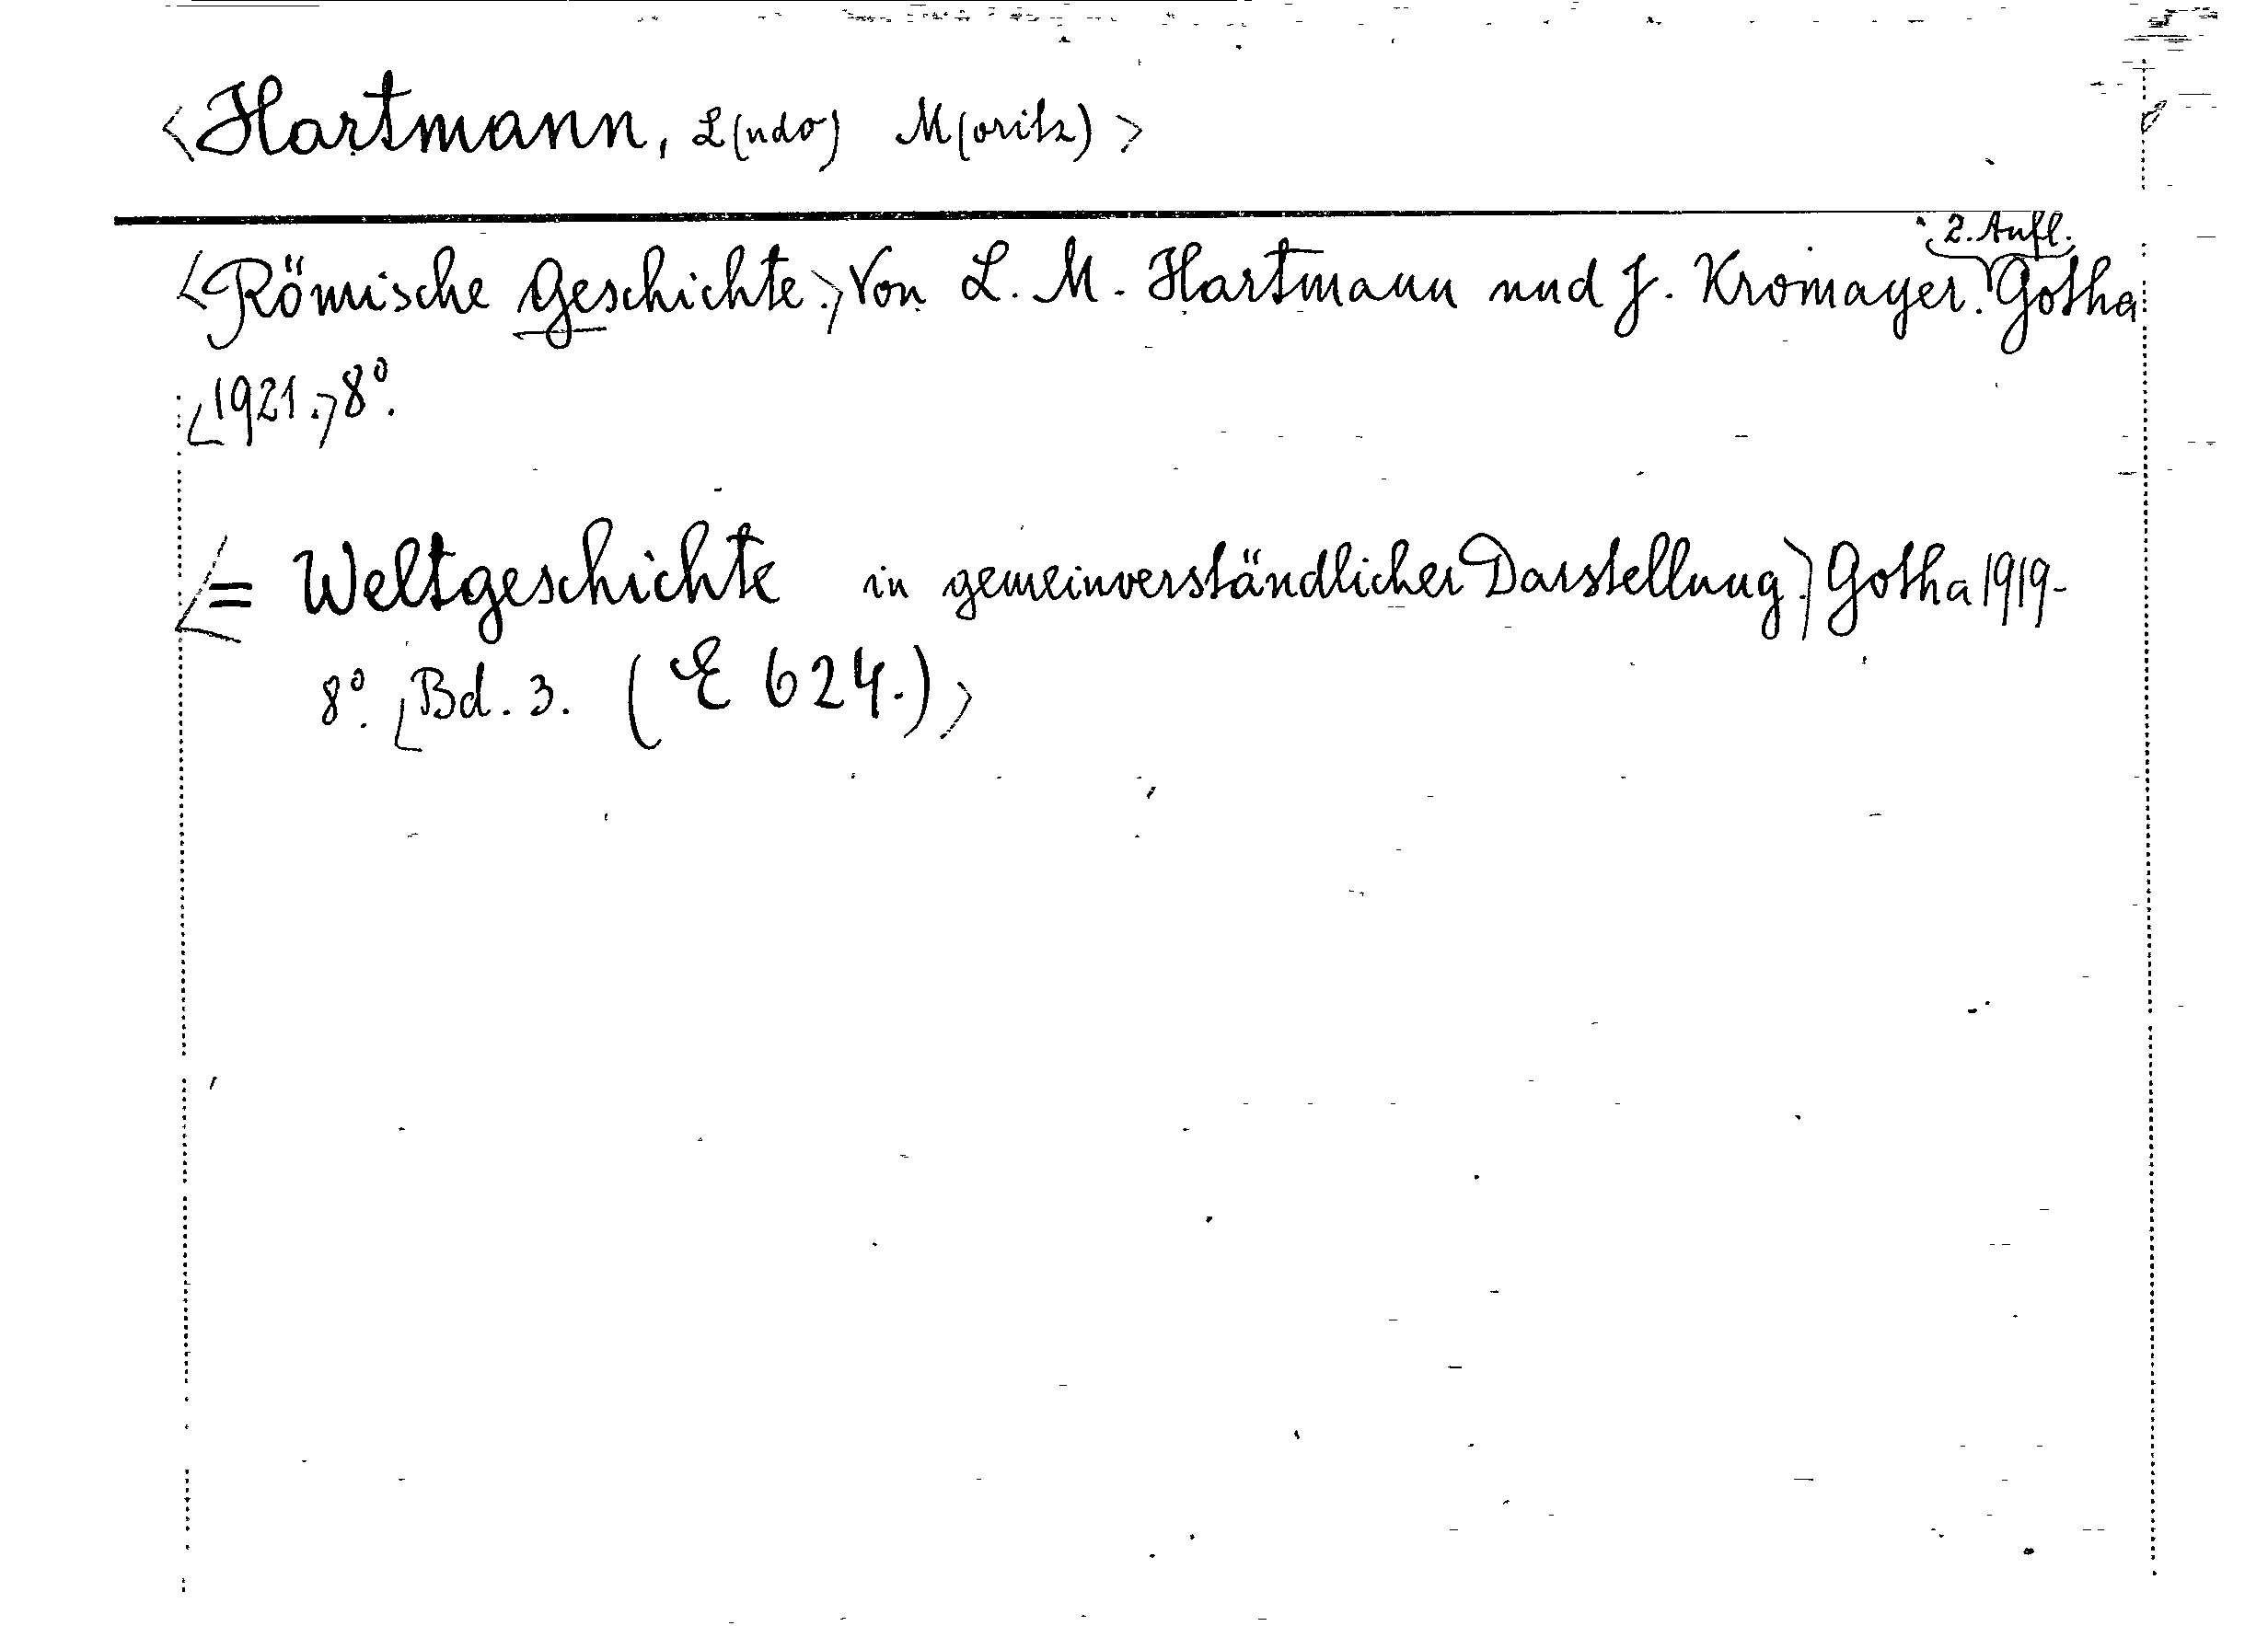 <Hartmann, L(udo) M(oritz)>
2. Aufl.
<Römische Geschichte.> Von L. M. Hartmann und J. Kromayer. Gotha
<1921.> 8°.
<= Weltgeschichte in gemeinverständlicher Darstellung.> Gotha 1919-
8°. <Bd. 3. (E 624.)>